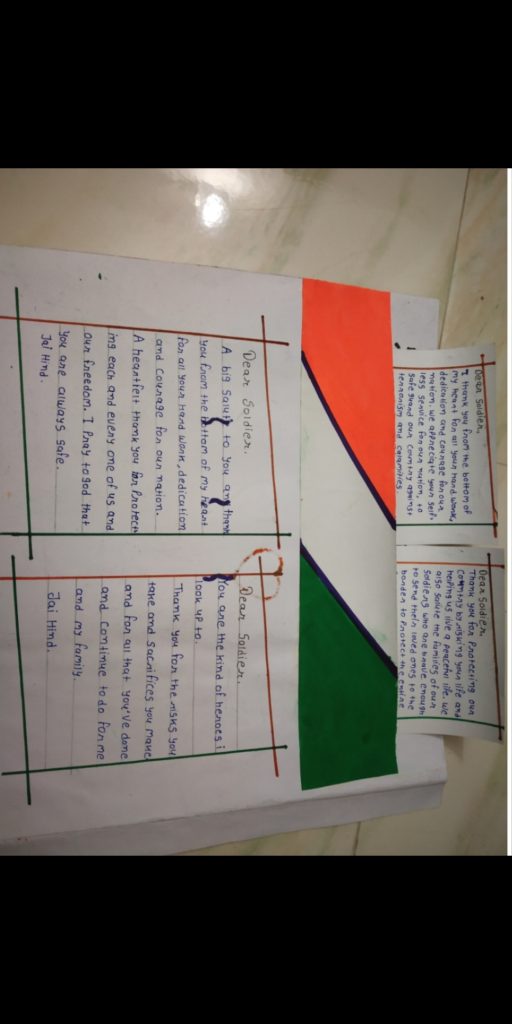 Dear Soldier,
I thank you from the bottom of
my heart for all your hard work,
dedication and courage for our
nation. we appreciate your self-
less service for our nation, to
safe guard our country against
terrorism and calamities
Dear Soldier,
Thank you for Protecting our
Country by risking your life and
helping us live a peaceful life. we
also salute the families of our
soldiers who are brave enough
to send their loved ones to the
border to Protect the entire
Dear Soldier.
A big salute to you and thank
you from the bottom of my heart
for all your hard work, dedication
and courage for our nation.
A heartfelt thank you for Protect
ing each and every one of us and
our freedom. I Pray to god that
you are always safe.
Jai Hind.
Dear Soldier.
You are the kind of heroes i
look up to.
Thank you for the risks you
take and sacrifices you make
and for all that you've done
and continue to do for me
and my family.
Jai Hind.